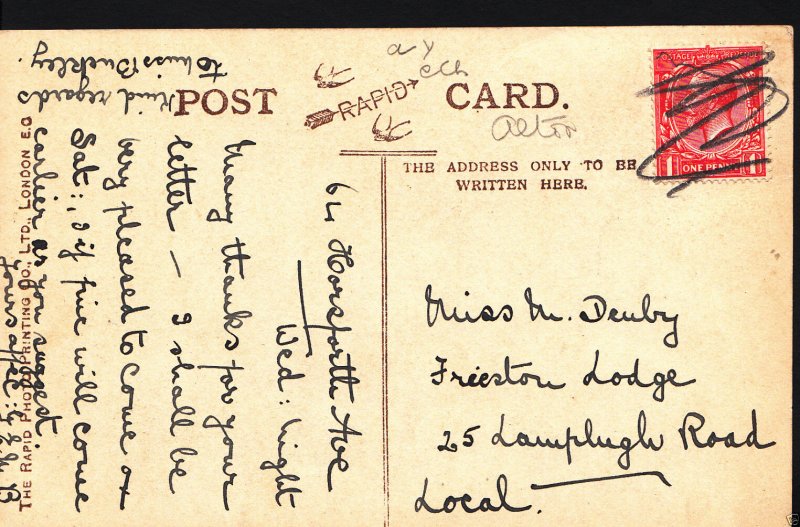 POST CARD.
RAPID
THE ADDRESS ONLY TO BE
WRITTEN HERE.
POSTAGE REVENUE
1 ONE PENNY 1
ay
cch
alton
64 Horsforth Ave
Wed: night
Many thanks for your
letter — I shall be
very pleased to come on
Sat:, & if fine will come
earlier as you suggest.
Yours affec:
Kind regards
to Miss Buckley.
THE RAPID PHOTO PRINTING CO., LTD., LONDON E.C
Miss M. Denby
Frieston Lodge
25 Lamplugh Road
Local.